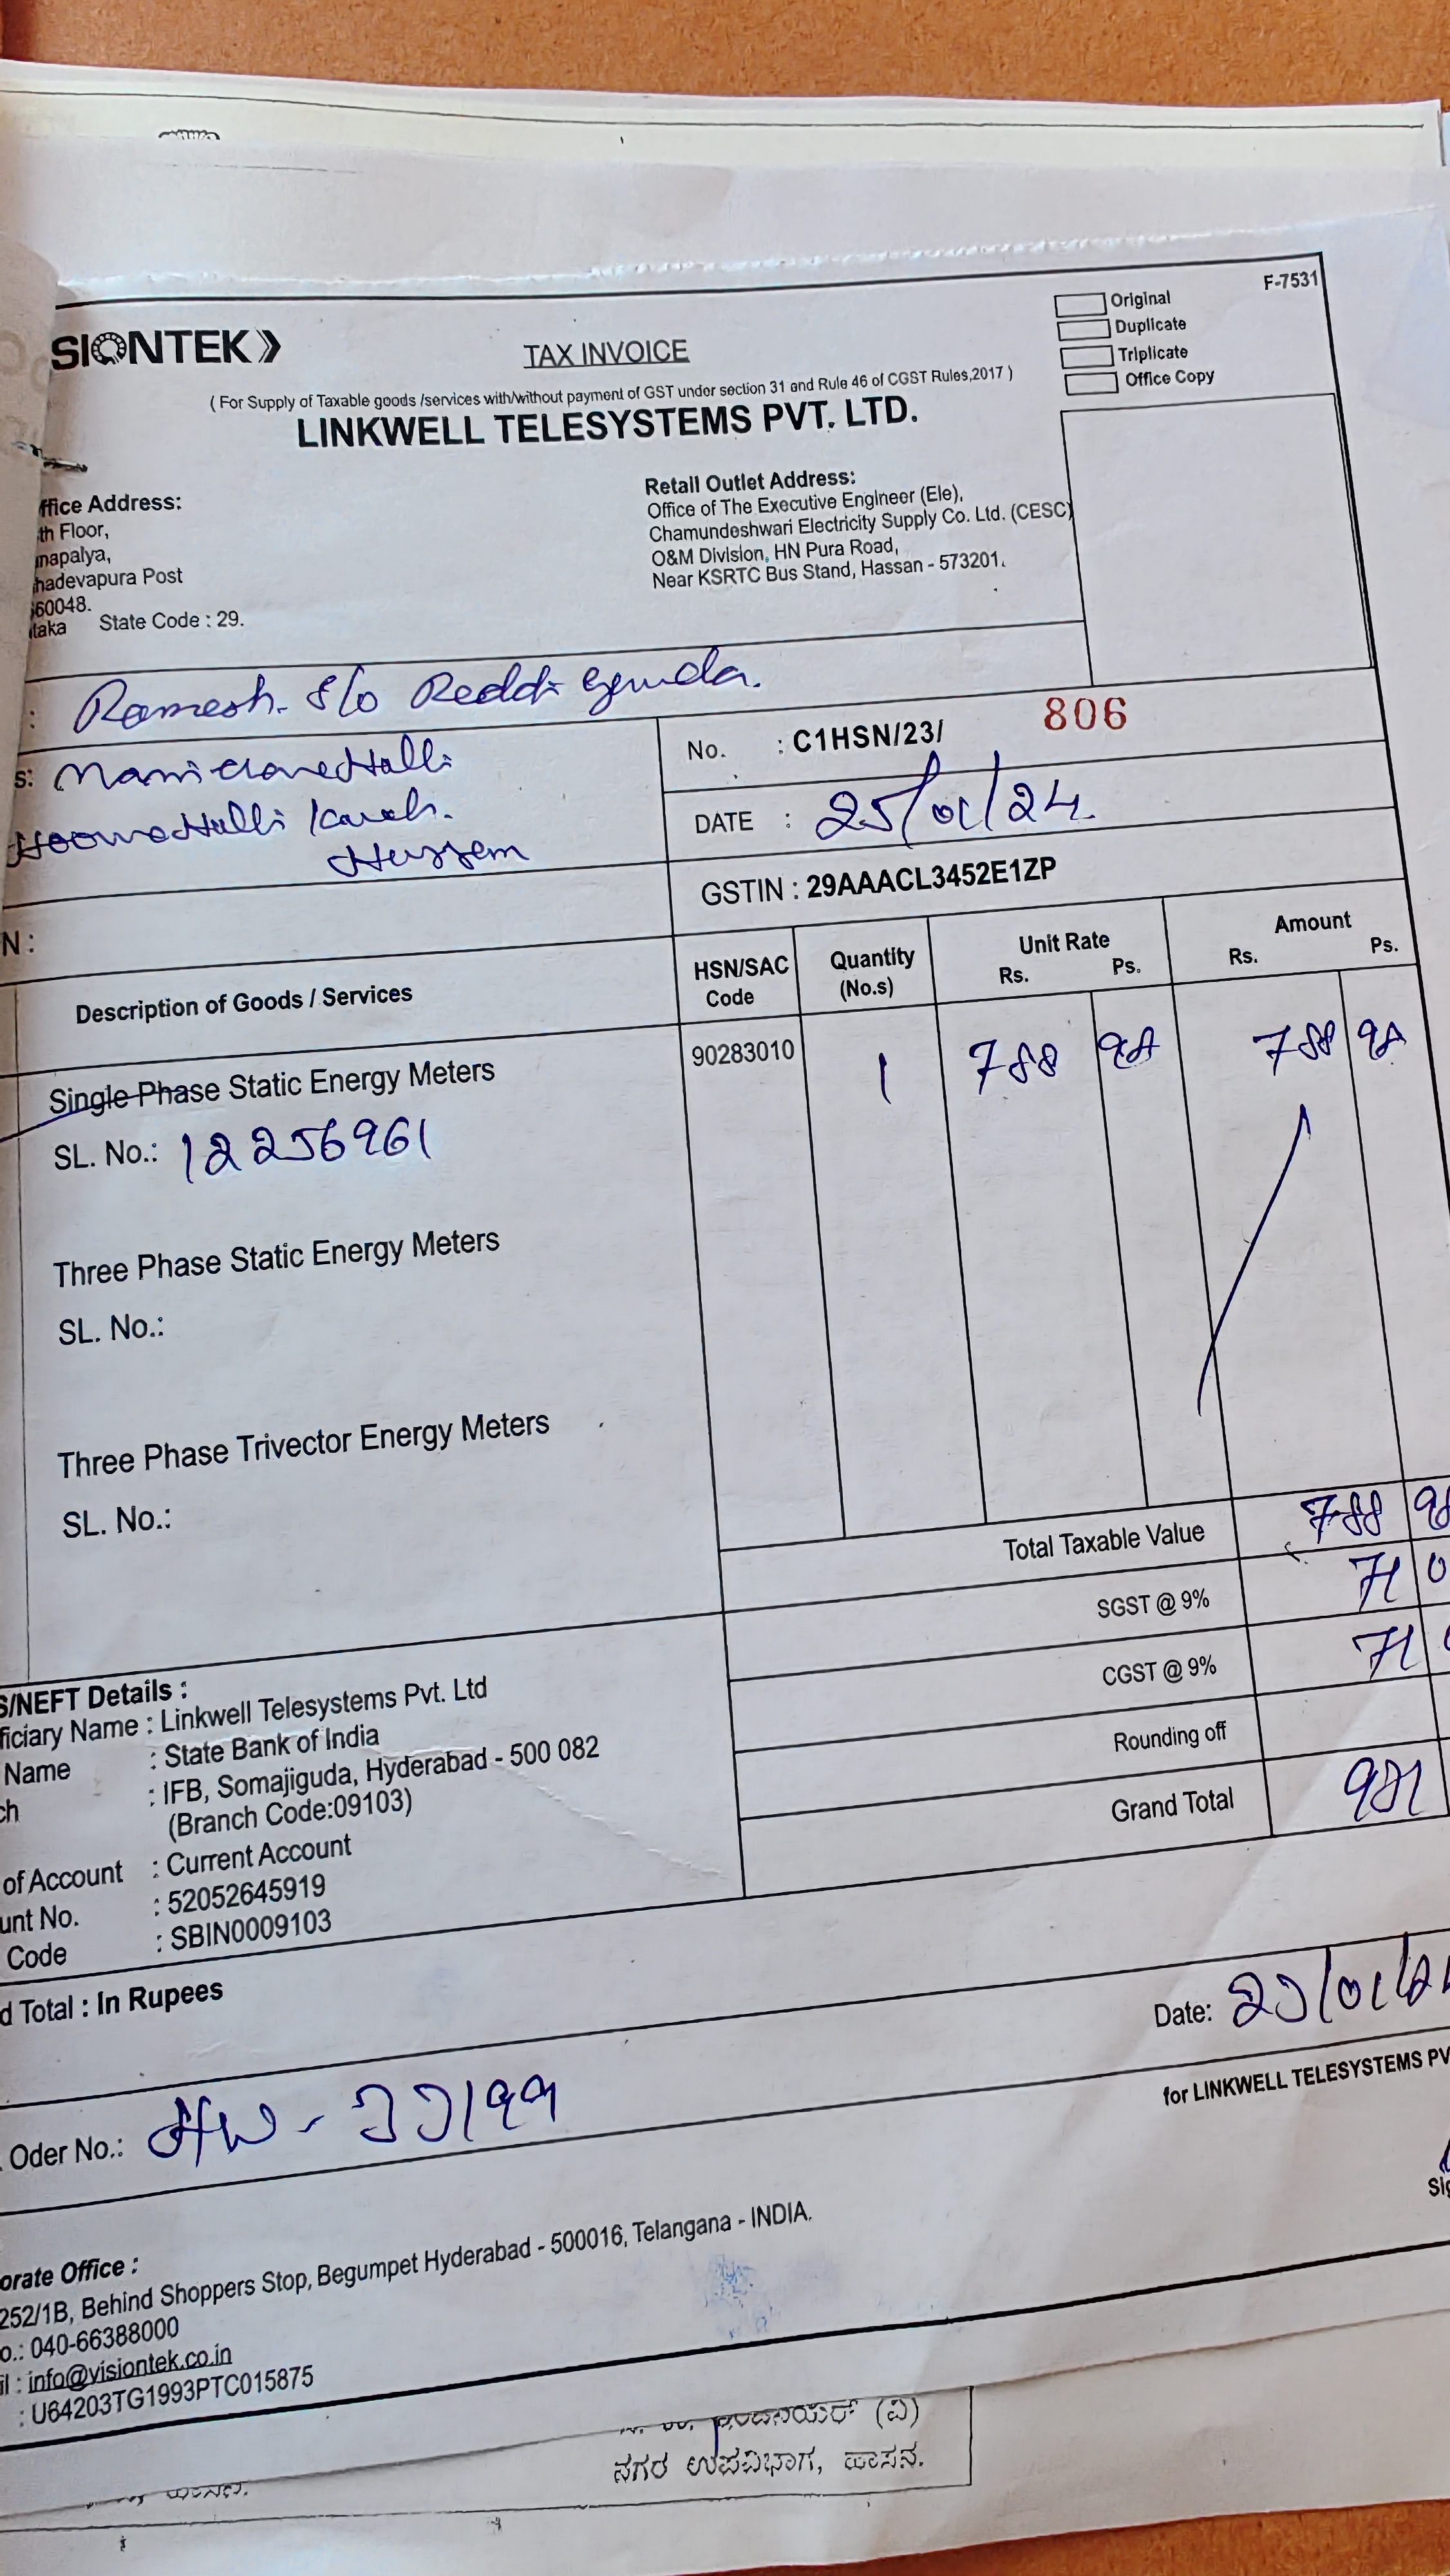 SIONTEK
TAX INVOICE
Original
Duplicate
Triplicate
Office Copy
F-7531
( For Supply of Taxable goods /services with/without payment of GST under section 31 and Rule 46 of CGST Rules,2017 )
LINKWELL TELESYSTEMS PVT. LTD.
ffice Address:
th Floor,
napalya,
hadevapura Post
560048.
taka State Code : 29.
Retail Outlet Address:
Office of The Executive Engineer (Ele),
Chamundeshwari Electricity Supply Co. Ltd. (CESC)
O&M Division, HN Pura Road,
Near KSRTC Bus Stand, Hassan - 573201.
: Ramesh. S/o Reddi gowda.
s:
No. : C1HSN/23/ 806
DATE : 25/01/24.
GSTIN : 29AAACL3452E1ZP
N :
Description of Goods / Services HSN/SAC Code Quantity (No.s) Unit Rate Rs. Ps. Amount Rs. Ps.
Single Phase Static Energy Meters 90283010 1 788 98 788 98
SL. No.: 12256961
Three Phase Static Energy Meters
SL. No.:
Three Phase Trivector Energy Meters
SL. No.:
Total Taxable Value 788 98
SGST @ 9% 71 0
CGST @ 9% 71
Rounding off
Grand Total 931
S/NEFT Details :
ficiary Name : Linkwell Telesystems Pvt. Ltd
Name : State Bank of India
ch : IFB, Somajiguda, Hyderabad - 500 082
(Branch Code:09103)
of Account : Current Account
unt No. : 52052645919
Code : SBIN0009103
d Total : In Rupees
Date: 25/01/24
for LINKWELL TELESYSTEMS PV
Oder No.:
Sig
orate Office :
252/1B, Behind Shoppers Stop, Begumpet Hyderabad - 500016, Telangana - INDIA.
o.: 040-66388000
il : info@visiontek.co.in
: U64203TG1993PTC015875
(ವಿ)
ನಗರ ಉಪವಿಭಾಗ, ಹಾಸನ.